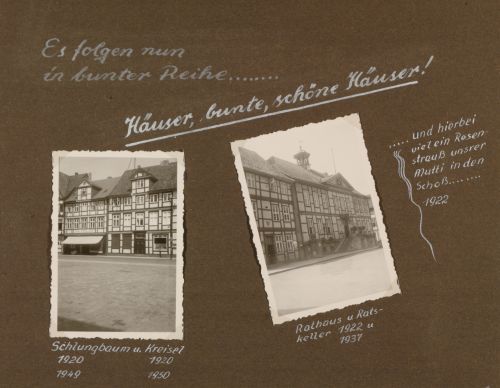 Es folgen nun
in bunter Reihe........
Häuser, bunte, schöne Häuser!
..... und hierbei
viel ein Rosen-
strauß unsrer
Mutti in den
Schoß........
1922
Schlungbaum u. Kreisel
1920 1920
1949 1950
Rathaus u Rats-
keller 1922 u
1937